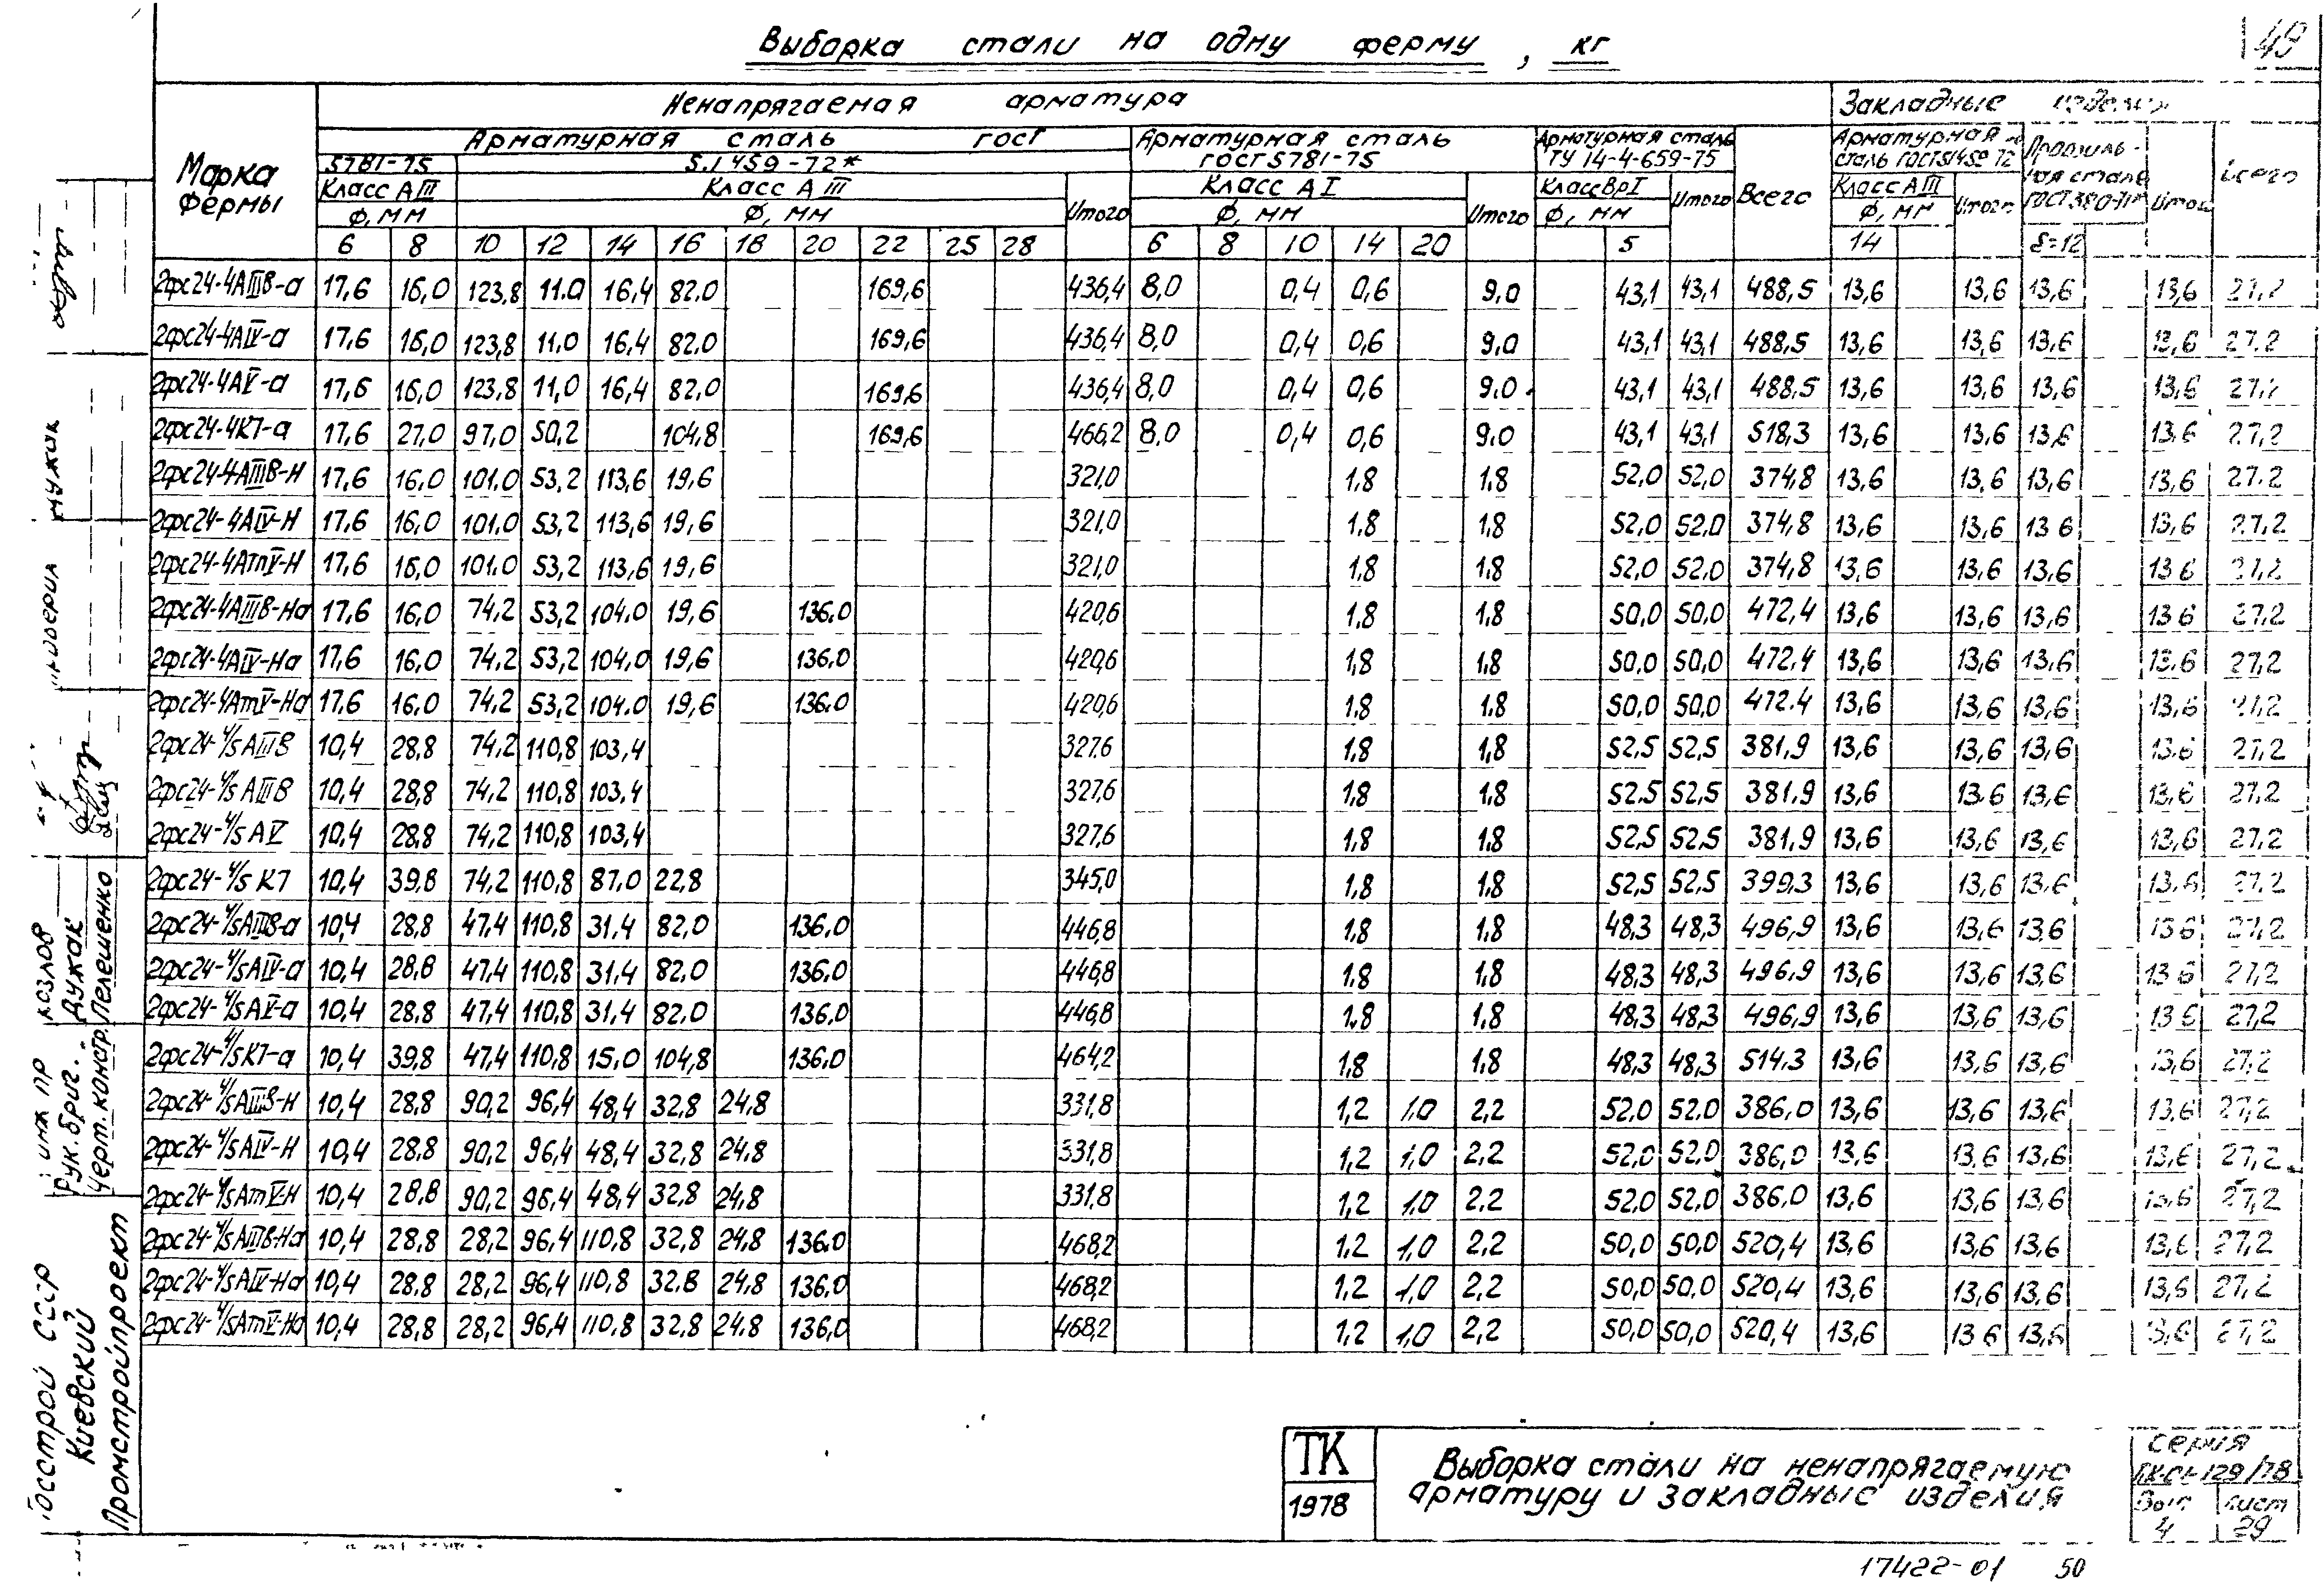 49
Выборка стали на одну ферму, кг
Марка фермы
Ненапрягаемая арматура
Закладные изделия
Арматурная сталь ГОСТ
Арматурная сталь ГОСТ 5781-75
Арматурная сталь ТУ 14-4-659-75
Всего
Арматурная сталь ГОСТ 5.1459-72
Профильная сталь ГОСТ 380-71*
Итого
Всего
5781-75
5.1459-72*
Класс АIII
Класс АIII
Итого
Класс АI
Итого
Класс ВрI
Итого
Класс АIII
Итого
Ф, мм
Ф, мм
Ф, мм
Ф, мм
Ф, мм
6 8 10 12 14 16 18 20 22 25 28 6 8 10 14 20 5 14 δ=12
2фс24-4АIIIв-а 17,6 16,0 123,8 11.0 16,4 82.0 169,6 436,4 8,0 0,4 0,6 9,0 43,1 43,1 488,5 13,6 13,6 13,6 13,6 27,2
2фс24-4АIV-а 17,6 16,0 123,8 11.0 16,4 82.0 169,6 436,4 8,0 0,4 0,6 9,0 43,1 43,1 488,5 13,6 13,6 13,6 13,6 27.2
2фс24-4АV-а 17,6 16,0 123,8 11,0 16,4 82,0 169,6 436,4 8,0 0,4 0,6 9.0 43,1 43,1 488,5 13,6 13,6 13,6 13,6 27,2
2фс24-4К7-а 17,6 27,0 97,0 50,2 104,8 169,6 466,2 8,0 0,4 0,6 9.0 43,1 43,1 518,3 13,6 13,6 13,6 13,6 27,2
2фс24-4АIIIв-Н 17,6 16,0 101.0 53,2 113,6 19,6 321,0 1,8 1.8 52,0 52,0 374,8 13,6 13,6 13,6 13,6 27.2
2фс24-4АIV-Н 17,6 16,0 101.0 53,2 113,6 19,6 321,0 1.8 1,8 52,0 52.0 374,8 13,6 13,6 13 6 13,6 27,2
2фс24-4АтV-Н 17,6 16,0 101.0 53,2 113,6 19,6 321,0 1,8 1,8 52,0 52,0 374,8 13,6 13,6 13,6 13 6 27,2
2фс24-4АIIIв-На 17,6 16,0 74,2 53,2 104,0 19,6 136,0 420,6 1,8 1,8 50,0 50,0 472,4 13,6 13,6 13,6 13 6 27,2
2фс24-4АIV-На 17,6 16,0 74,2 53,2 104,0 19,6 136,0 420,6 1,8 1,8 50,0 50,0 472.4 13,6 13,6 13,6 13.6 27,2
2фс24-4АтV-На 17.6 16,0 74,2 53,2 104.0 19,6 136.0 420,6 1,8 1.8 50,0 50,0 472.4 13,6 13,6 13,6 13,6 27,2
2фс24-4/5 АIIIв 10,4 28,8 74,2 110,8 103,4 327,6 1,8 1,8 52,5 52,5 381,9 13,6 13,6 13,6 13,6 27,2
2фс24-4/5 АIIIв 10,4 28,8 74,2 110,8 103,4 327,6 1,8 1,8 52.5 52,5 381.9 13,6 13,6 13,6 13,6 27,2
2фс24-4/5 АV 10,4 28,8 74,2 110,8 103,4 327,6 1,8 1.8 52,5 52,5 381,9 13,6 13,6 13,6 13,6 27,2
2фс24-4/5 К7 10,4 39,8 74,2 110,8 87,0 22,8 345,0 1,8 1,8 52,5 52,5 399,3 13,6 13,6 13,6 13,6 27,2
2фс24-4/5АIIIв-а 10,4 28,8 47,4 110,8 31,4 82,0 136,0 446,8 1,8 1,8 48,3 48,3 496,9 13,6 13,6 13,6 13 6 27,2
2фс24-4/5АIV-а 10,4 28,8 47,4 110,8 31,4 82,0 136,0 446,8 1,8 1,8 48,3 48,3 496.9 13,6 13,6 13,6 13 6 27,2
2фс24-4/5 АV-а 10,4 28,8 47,4 110,8 31,4 82,0 136,0 446,8 1,8 1,8 48,3 48,3 496,9 13,6 13,6 13,6 13 6 27,2
2фс24-4/5К7-а 10,4 39,8 47,4 110,8 15,0 104,8 136,0 464,2 1,8 1,8 48,3 48,3 514.3 13,6 13,6 13,6 13,6 27,2
2фс24-4/5АIIIв-Н 10,4 28,8 90,2 96,4 48,4 32,8 24,8 331,8 1,2 1,0 2,2 52,0 52.0 386,0 13,6 13,6 13,6 13,6 27,2
2фс24-4/5АIV-Н 10,4 28,8 90,2 96,4 48,4 32,8 24,8 331,8 1,2 1,0 2,2 52,0 52,0 386,0 13,6 13,6 13,6 13,6 27,2
2фс24-4/5АтV-Н 10,4 28,8 90,2 96,4 48,4 32,8 24,8 331,8 1,2 1,0 2,2 52,0 52,0 386.0 13,6 13,6 13,6 13,6 27,2
2фс24-4/5АIIIв-На 10,4 28,8 28,2 96,4 110,8 32,8 24,8 136.0 468,2 1,2 1,0 2,2 50,0 50,0 520,4 13,6 13,6 13,6 13,6 27,2
2фс24-4/5АIV-На 10,4 28,8 28,2 96,4 110,8 32,8 24,8 136,0 468,2 1,2 1,0 2,2 50,0 50,0 520,4 13,6 13,6 13,6 13,6 27,2
2фс24-4/5АтV-На 10,4 28,8 28,2 96,4 110,8 32,8 24.8 136,0 468,2 1,2 1,0 2,2 50,0 50,0 520,4 13,6 13 6 13,6 13,6 27,2
Госстрой СССР
Киевский
Промстройпроект
инж пр
Козлов
Рук. бриг.
Дужак
Черт. контр.
Пелешенко
Дужак
ТК
1978
Выборка стали на ненапрягаемую
арматуру и закладные изделия
серия
ПК-01-129/78
Вып лист
4 29
17422-01 50